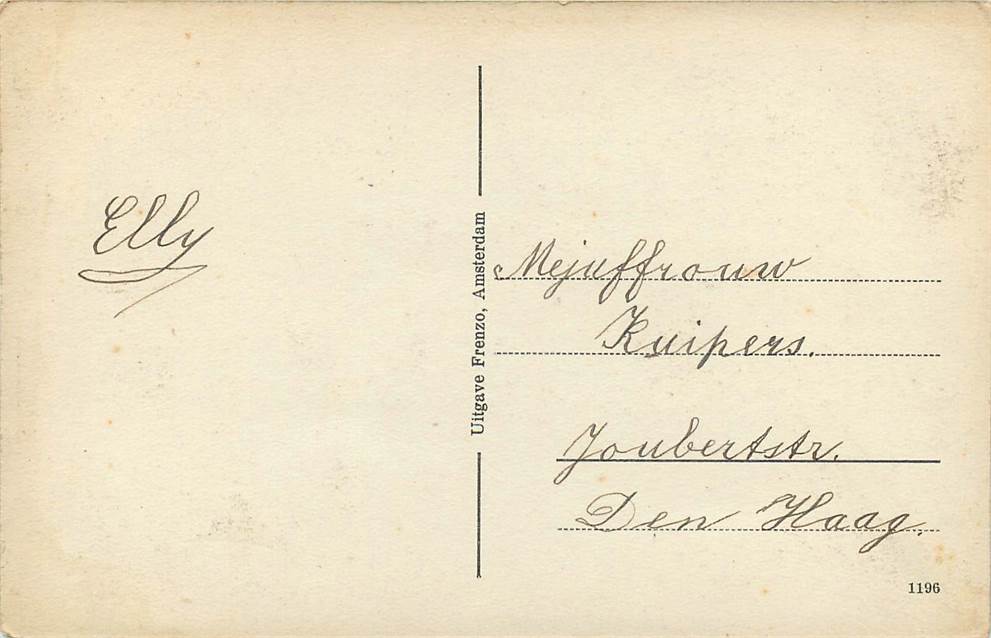 Elly
Uitgave Frenzo, Amsterdam
Mejuffrouw
Kuipers.
Joubertstr.
Den Haag.
1196